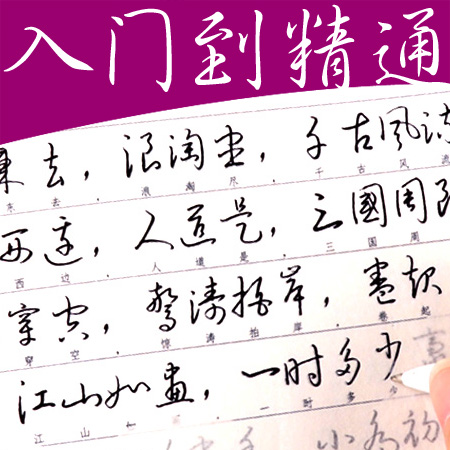 入门到精通
東去，浪淘尽，千古風流
东去，浪淘尽，千古风流
西邊，人道是，三國周郎
西边，人道是，三国周
穿空，驚濤拍岸，卷起
穿空，惊涛拍岸，卷起
江山如畫，一时多少
江山如，一时多
小喬初